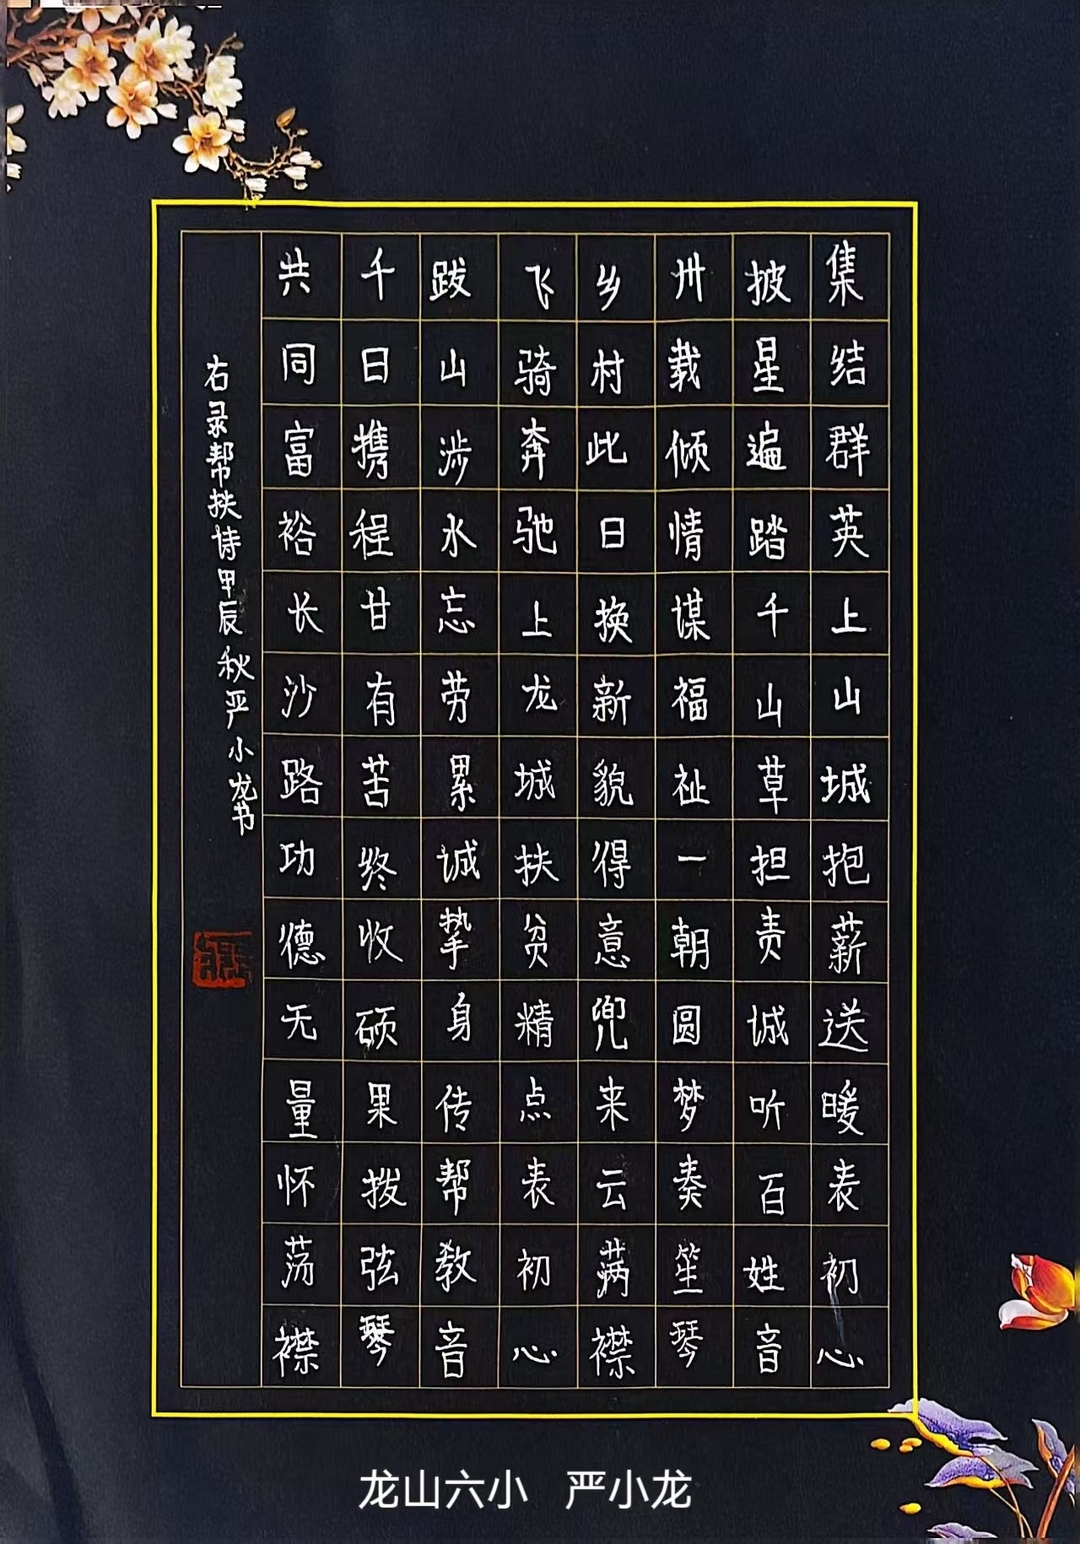 集结群英上山城抱薪送暖表初心
披星遍踏千山草担责诚听百姓音
卅载倾情谋福祉一朝圆梦奏笙琴
乡村此日换新貌得意兜来云满襟
飞骑奔驰上龙城扶贫精点表初心
跋山涉水忘劳累诚挚身传帮教音
千日携程甘有苦终收硕果拨弦琴
共同富裕长沙路功德无量怀荡襟
右录帮扶诗甲辰秋严小龙书
龙山六小 严小龙